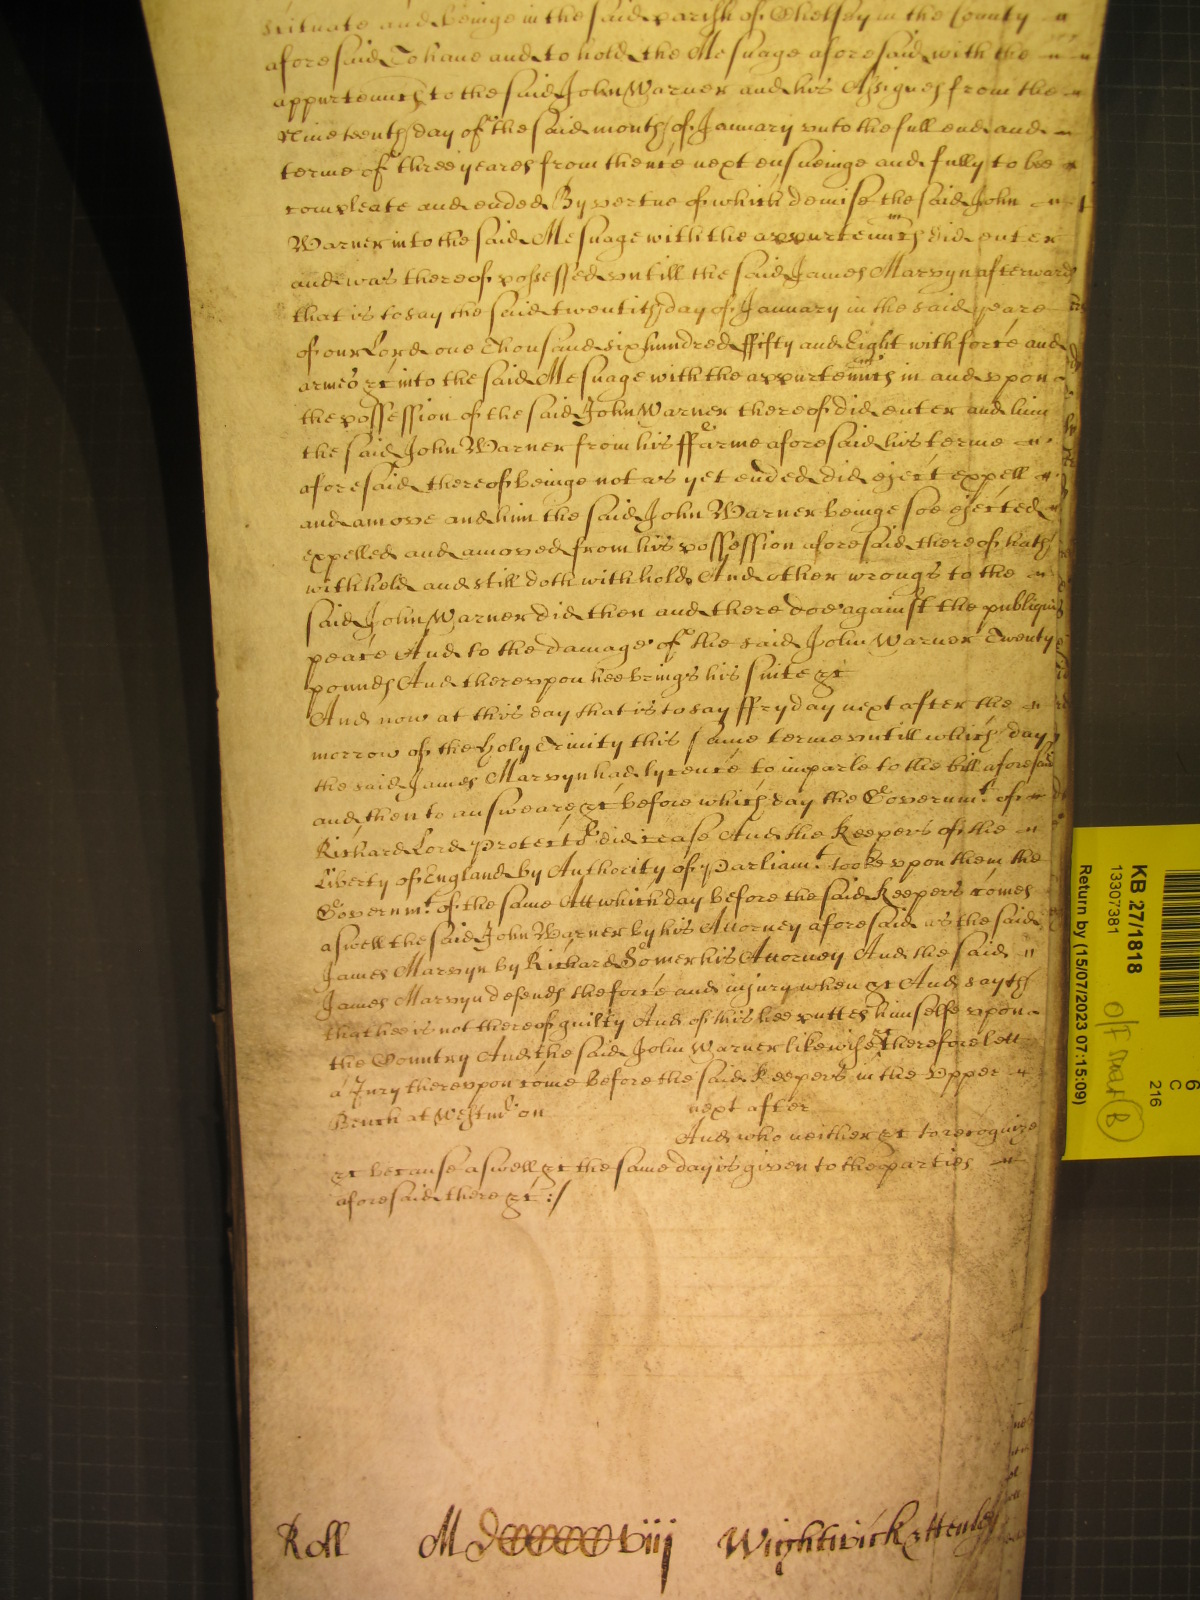 scituate and beinge in the said parish of Chelsey in the County
aforesaid To haue and to hold the Mesuage aforesaid with the
appurtennces to the said John Warner and his Assignes from the
Nineteenth day of the said month of January vnto the full end and
terme of three yeares from thence next ensueinge and fully to bee
compleate and ended By vertue of which demise the said John
Warner into the said Mesuage with the appurtennces did enter
and was thereof possessed vntill the said James Marvyn afterwards
that is to say the said twentith day of January in the said yeare
of our Lord one Thousand six hundred ffifty and Eight with force and
armes &c into the said Mesuage with the appurtennces in and vpon
the possession of the said John Warner thereof did enter and him
the said John Warner from his ffarme aforesaid his terme
aforesaid thereof beinge not as yet ended did eject expell
and amove and him the said John Warner beinge soe ejected
expelled and amoved from his possession aforesaid thereof hath
withheld and still doth withhold And other wrongs to the
said John Warner did then and there doe against the publique
peace And to the damage of the said John Warner Twenty
pounds And therevpon hee brings his suite &c
And now at this day that is to say ffryday next after the
morrow of the Holy Trinity this same terme vntill which day
the said James Marvyn had lycence to imparle to the bill aforesaid
and then to answeare &c before which day the Governmt. of
Richard Lord Protector did cease And the Keepers of the
Liberty of England by Authority of Parliamt. tooke vpon them the
Governmt. of the same Att which day before the said Keepers comes
aswell the said John Warner by his Attorney aforesaid as the said
James Marvyn by Richard Somer his Attorney And the said
James Marvyn defends the force and injury when &c And sayth
that hee is not thereof guilty And of this hee puttes himselfe vpon
the Country And the said John Warner likewise &c therefore lett
a Jury therevpon come before the said Keepers in the Vpper
Bench at Westmr on next after
And who neither &c to recognize
&c because aswell &c the same day is given to the parties
aforesaid there &c :/
Roll M Dccccccviij Wightwick & Henley
KB 27/1818
13307381
Return by (15/07/2023 07:15:09)
6
C
216